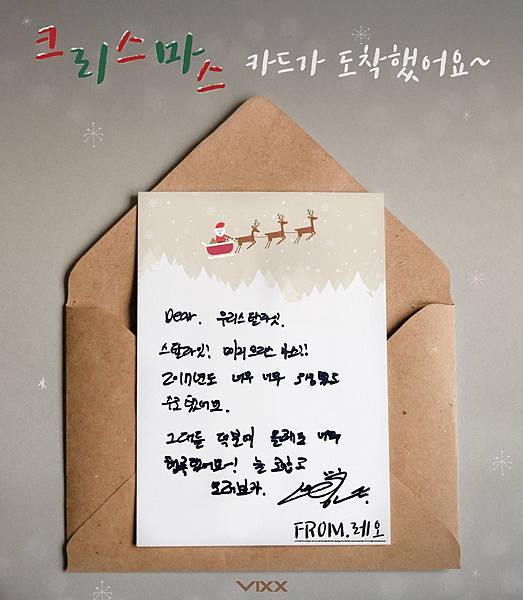 크리스마스 카드가 도착했어요~
Dear. 우리스탈라잇.
스탈라잇! 메리크리스마스!!
2017년도 너무 너무 고생많고
수고했어요.
그대들 덕분에 올해도 너무
행복했어요~! 늘 고맙고
FROM.레오
VIXX